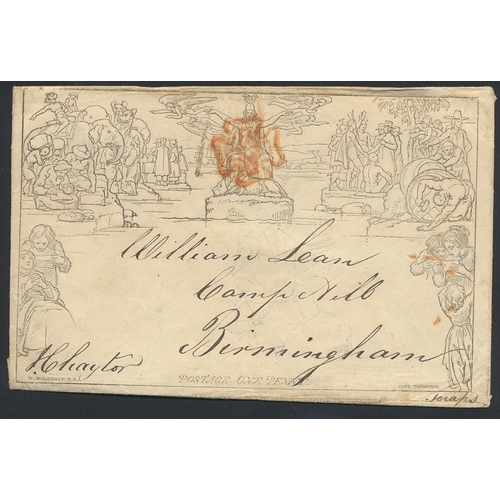 William Lean
Camp Hill
Birmingham
H Chaytor
W. MULREADY. R.A.
POSTAGE ONE PENNY.
JOHN THOMPSON.
Scraps.